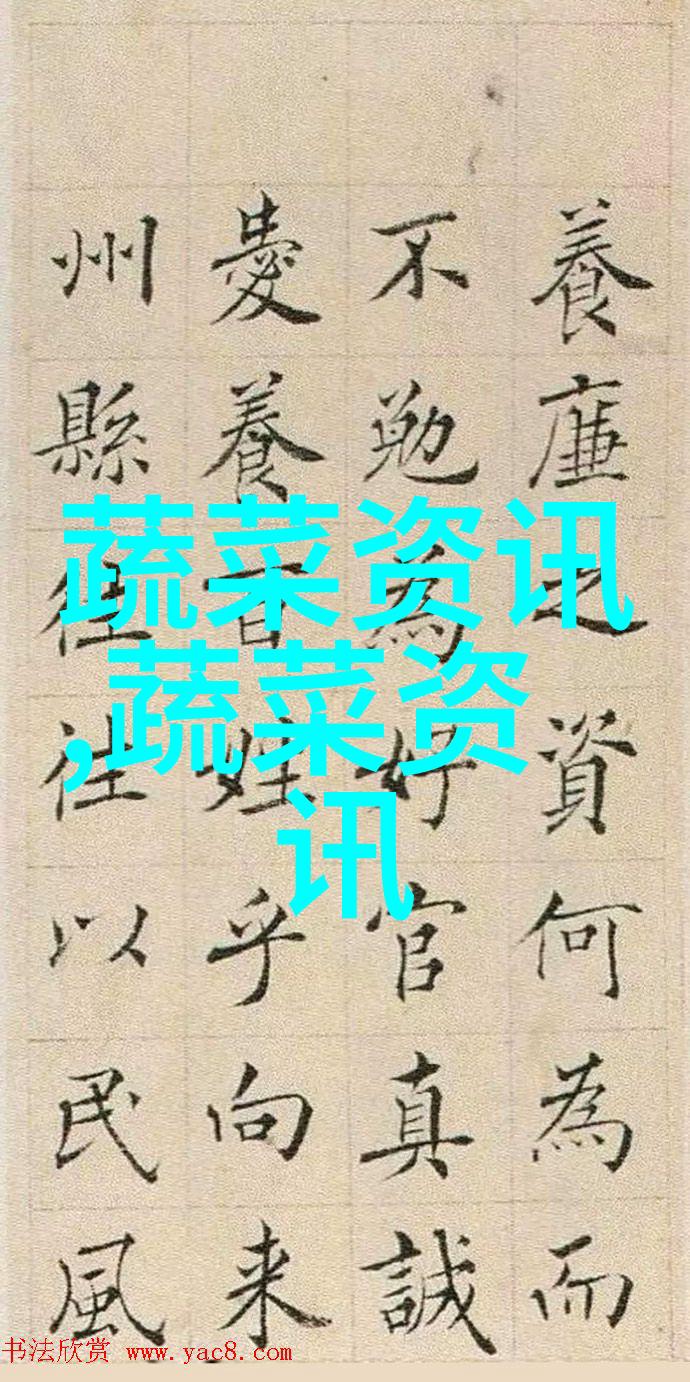 養廉之資何為而
不勉為好官真誠
愛養百姓乎向来
州縣往往以民風
蔬菜资讯
,蔬菜资
讯
书法欣赏 www.yac8.com